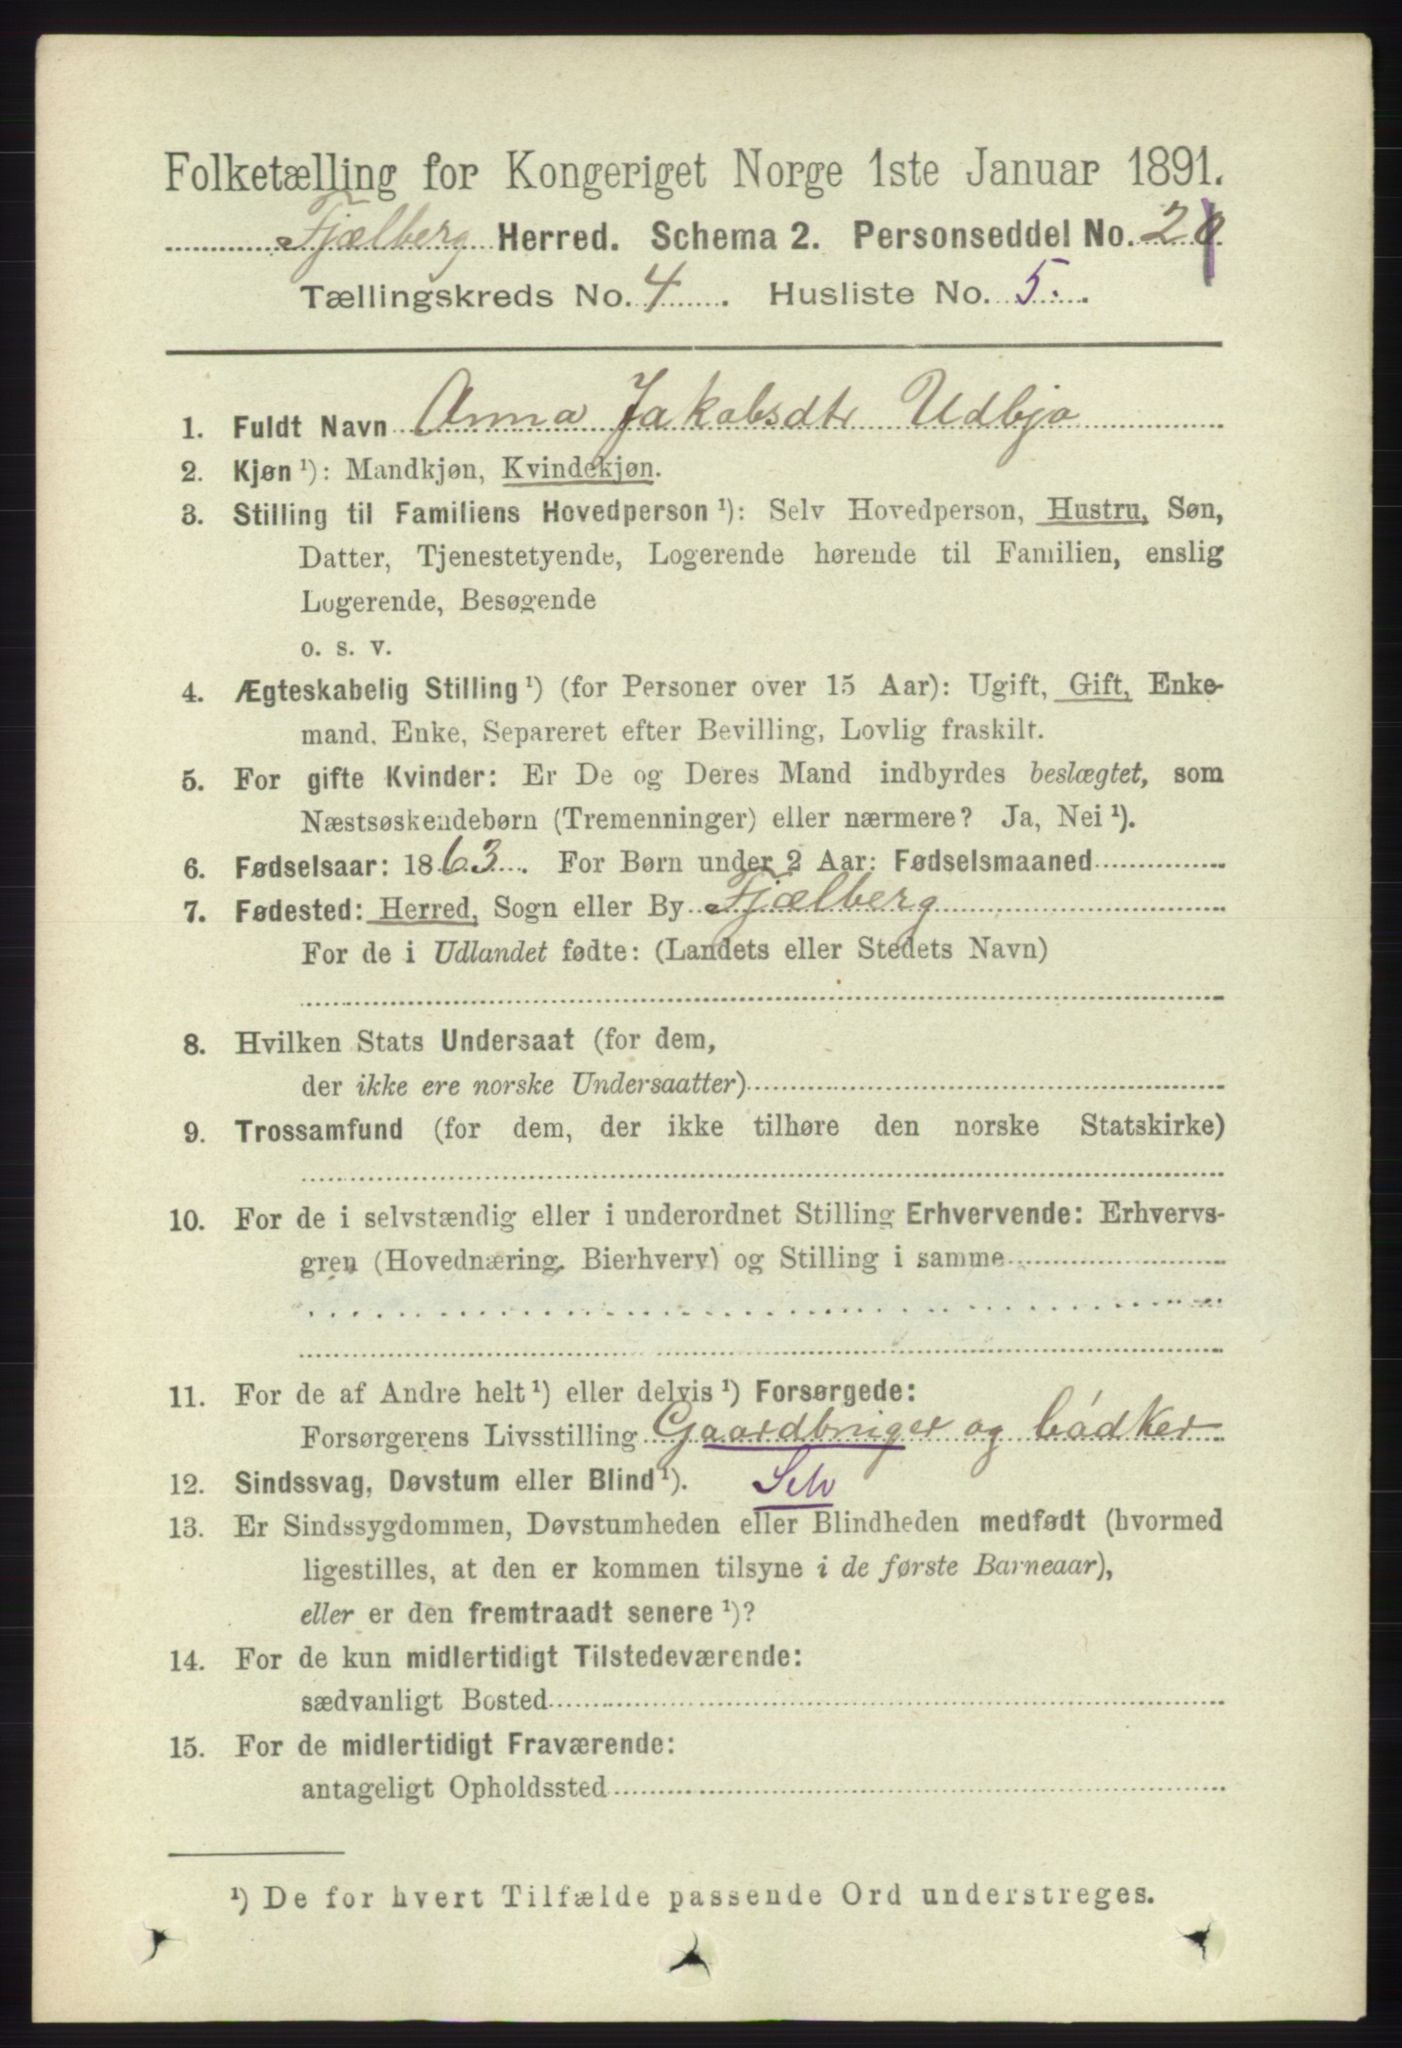 Folketælling for Kongeriget Norge 1ste Januar 1891.
Fjælberg Herred. Schema 2. Personseddel No. 2
Tællingskreds No. 4. Husliste No. 5.
1. Fuldt Navn Anna Jakobsdtr Udbjo
2. Kjøn ¹): Mandkjøn, Kvindekjøn.
3. Stilling til Familiens Hovedperson ¹): Selv Hovedperson, Hustru, Søn,
Datter, Tjenestetyende, Logerende hørende til Familien, enslig
Logerende, Besøgende
o. s. v.
4. Ægteskabelig Stilling ¹) (for Personer over 15 Aar): Ugift, Gift, Enke-
mand, Enke, Separeret efter Bevilling, Lovlig fraskilt.
5. For gifte Kvinder: Er De og Deres Mand indbyrdes beslægtet, som
Næstsøskendebørn (Tremenninger) eller nærmere? Ja, Nei ¹).
6. Fødselsaar: 1863. For Børn under 2 Aar: Fødselsmaaned
7. Fødested: Herred, Sogn eller By Fjælberg
For de i Udlandet fødte: (Landets eller Stedets Navn)
8. Hvilken Stats Undersaat (for dem,
der ikke ere norske Undersaatter)
9. Trossamfund (for dem, der ikke tilhøre den norske Statskirke)
10. For de i selvstændig eller i underordnet Stilling Erhvervende: Erhvervs-
gren (Hovednæring, Bierhverv) og Stilling i samme
11. For de af Andre helt ¹) eller delvis ¹) Forsørgede:
Forsørgerens Livsstilling Gaardbruger og bødker
12. Sindssvag, Døvstum eller Blind ¹). Selv
13. Er Sindssygdommen, Døvstumheden eller Blindheden medfødt (hvormed
ligestilles, at den er kommen tilsyne i de første Barneaar),
eller er den fremtraadt senere ¹)?
14. For de kun midlertidigt Tilstedeværende:
sædvanligt Bosted
15. For de midlertidigt Fraværende:
antageligt Opholdssted
¹) De for hvert Tilfælde passende Ord understreges.